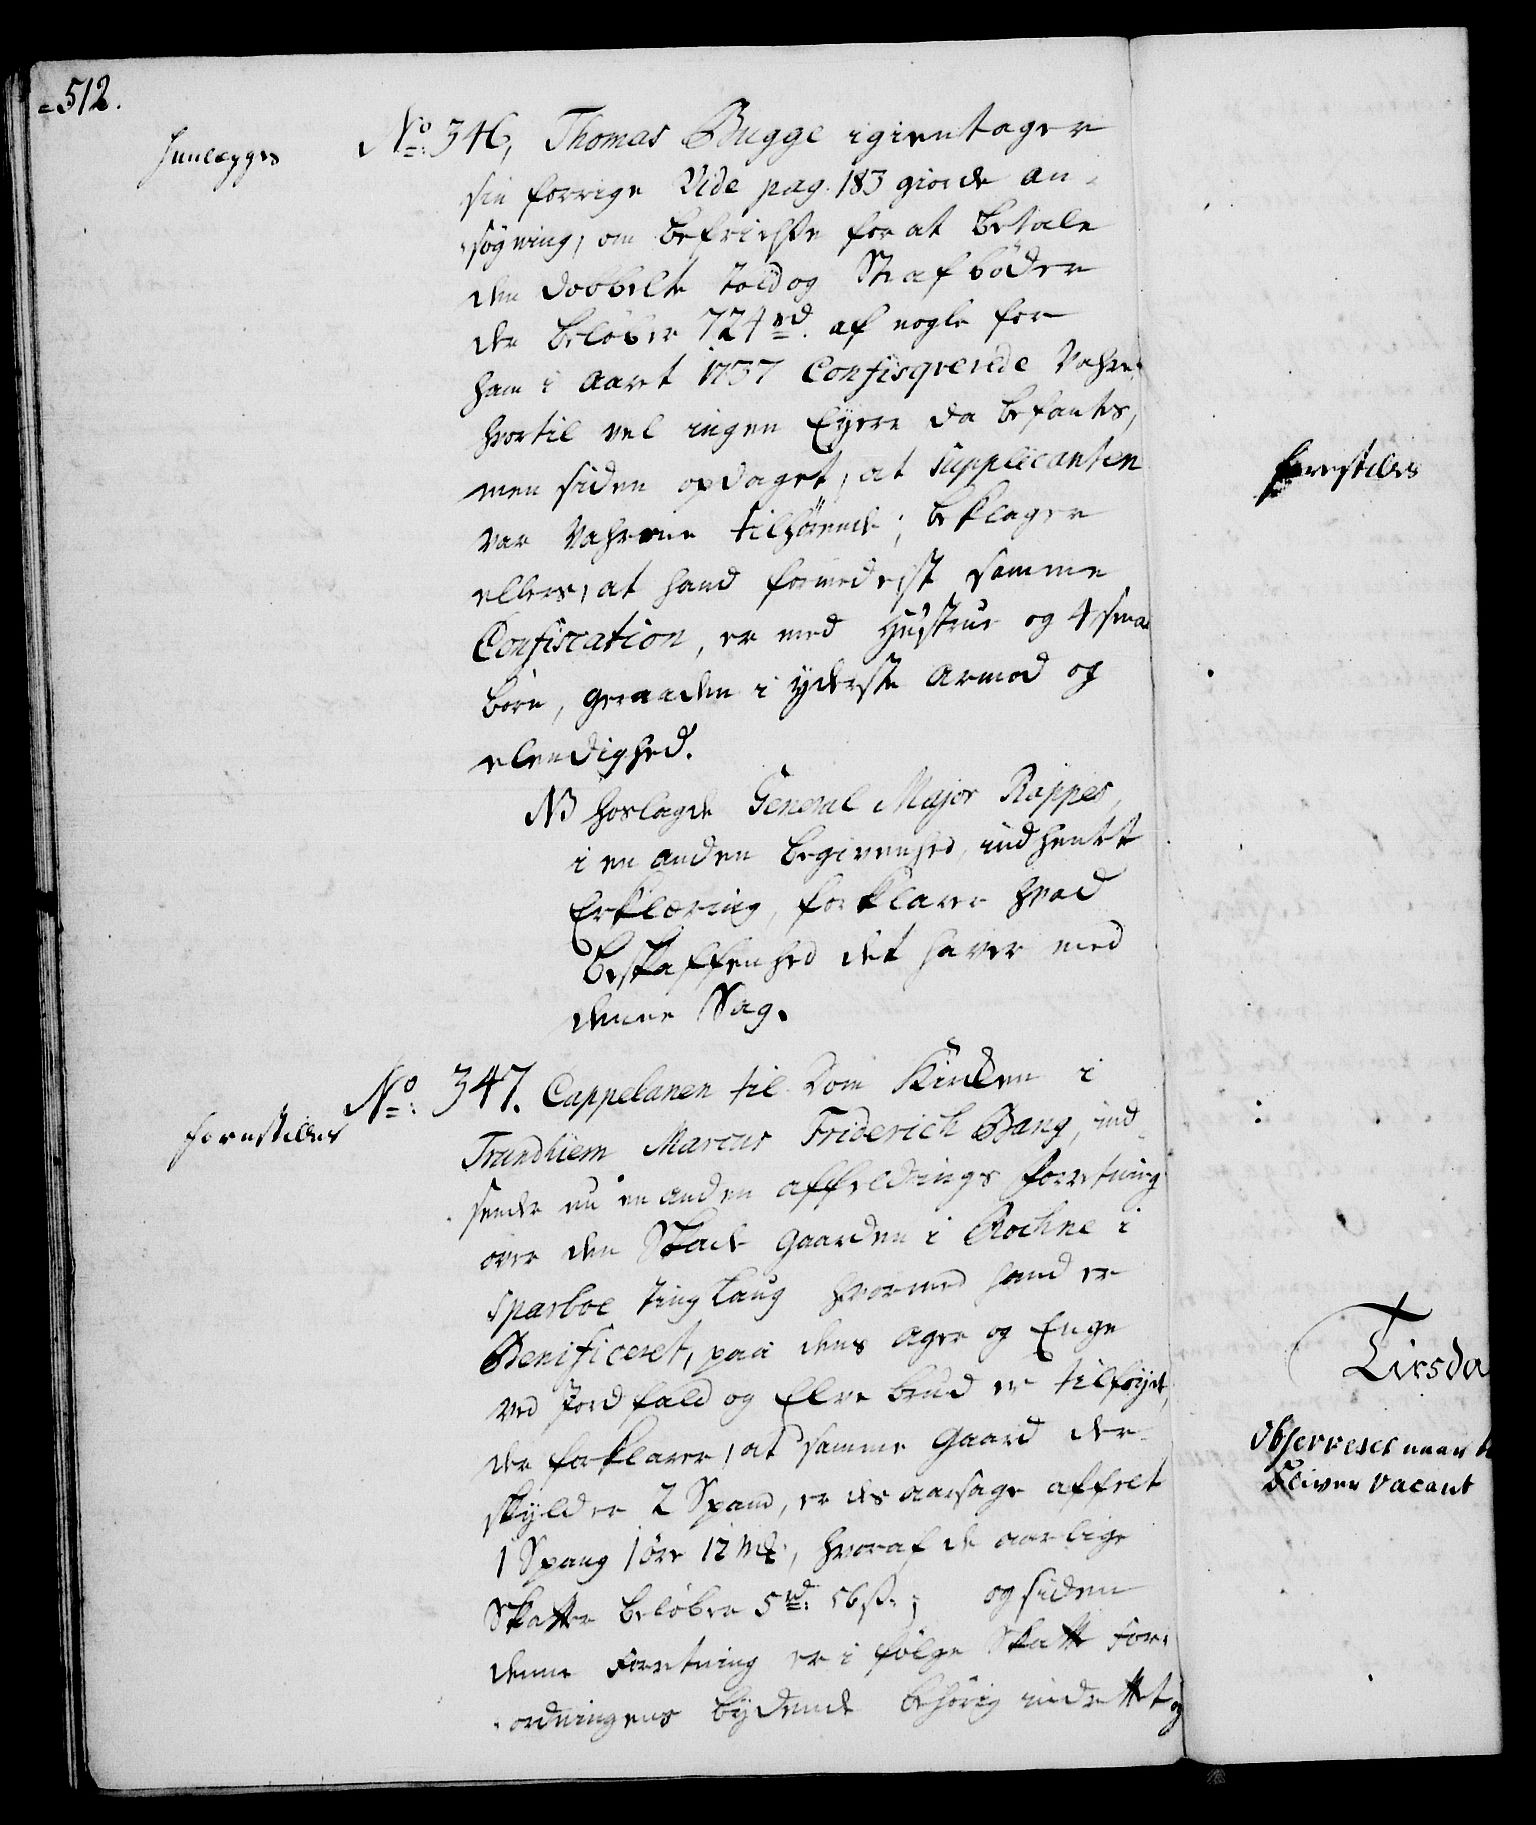 512.
Henlegges
No: 346, Thomas Bugge igientager
sin forrige Vide pag. 183 giorde an-
søgning, om befrielse for at betale
den dobbelte told og Straf bøder
der beløber 724 rd. af nogle for
ham i Aaret 1737 Confisqverede Vahre,
hvortil vel ingen Eyere da befantes,
men siden opdaget, at Supplicanten
var Vahrene tilhørende; beklager
ellers, at hand formedelst samme
Confiscation, er med Hustrue og 4 smaa
børn, geraaden i yderste Armod og
elendighed.
NB hoslagde General Major Rappes,
i en anden begivenhed, indhentet
Erklæring, forklarer hvad
Beskaffenhed det haver med
denne Sag.
forestilles
No: 347. Cappelanen til Dom Kirken i
Trundhiem Marcus Friderich Bang, ind-
sender nu en anden affeldings forretning
over den Skade Gaarden i Rochne i
Sparboe tinglaug hvormed hand er
Benificeret, paa dens Ager og Enge
ved Jord fald og Elve brud er tilføyet,
der forklarer, at samme Gaard der
skylder 2 Spand, er des aarsage affelt
1 Spang 1 øre 12 mk, hvoraf de aarlige
Skatter beløber 5 rd: 56 s; og siden
denne Forretning er i følge Skatt For-
ordningens bydende behørig indrettet og
forestilles
Tirsda
Observeres naar
bliver vacant